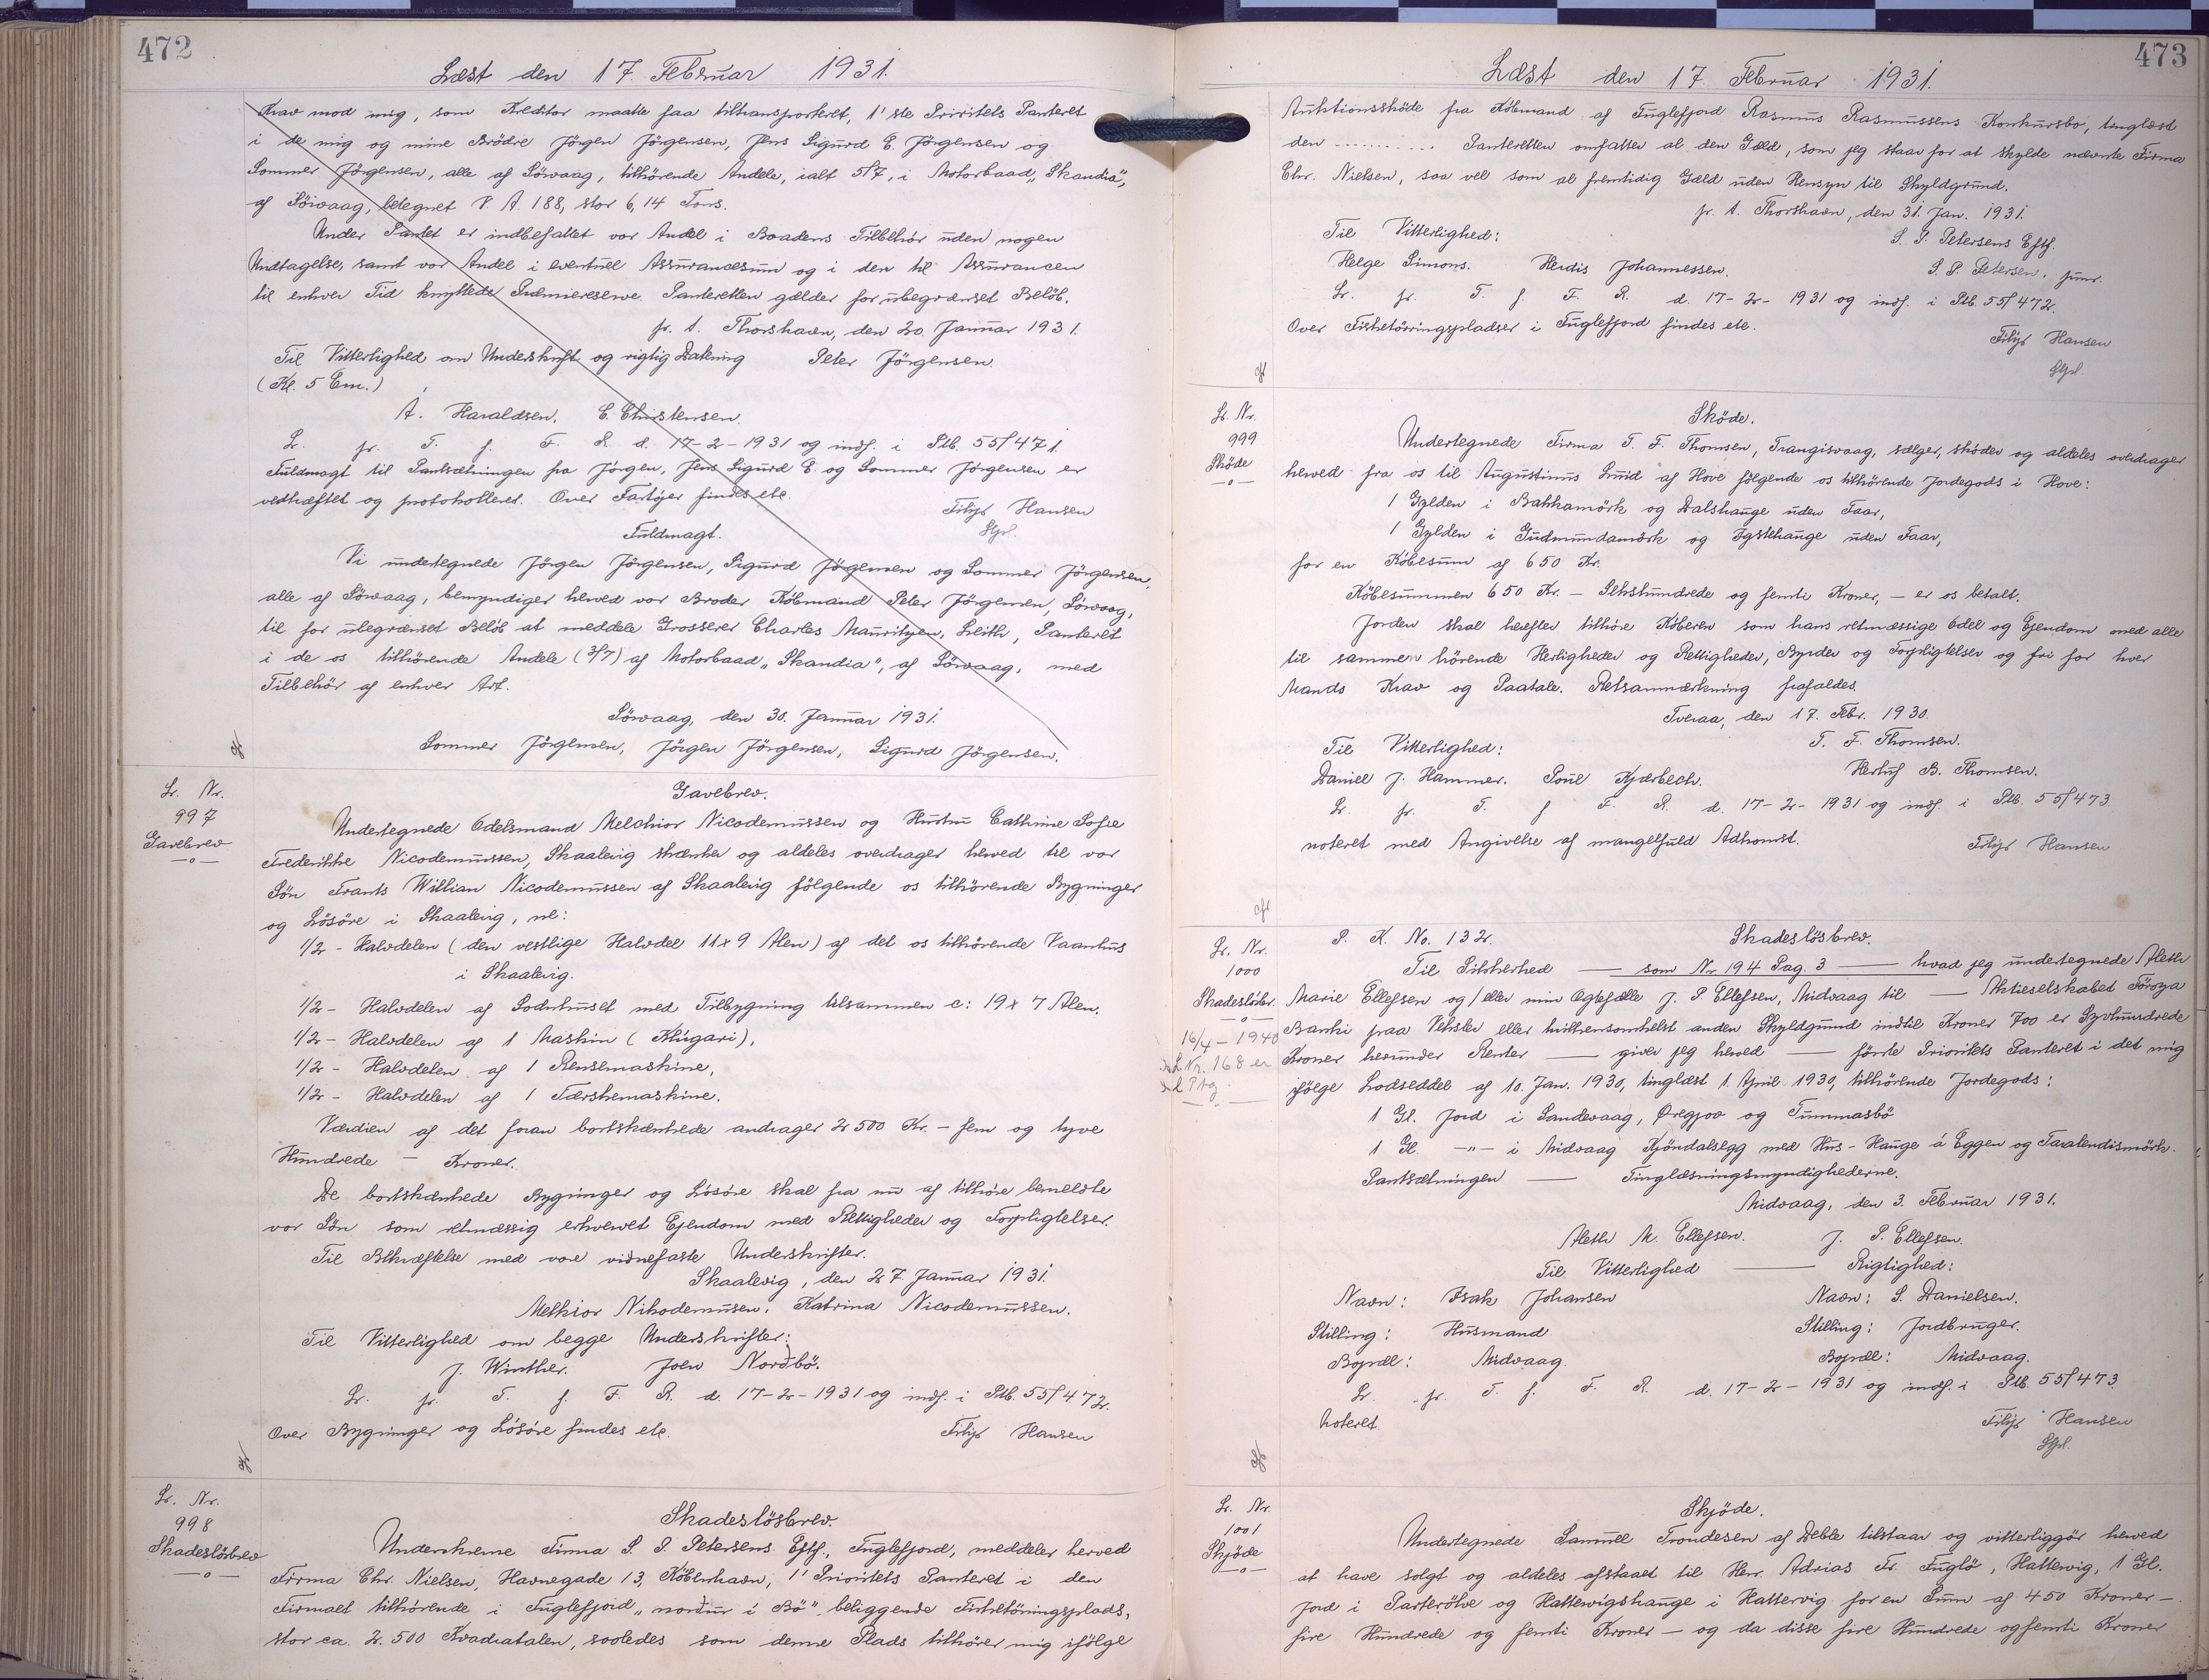 472
Læst den 17. Februar 1931.
Krav mod mig, som Kreditor maatte faa tiltransporteret, 1'ste Prioritets Panteret
i de mig og mine Brödre Jörgen Jörgensen, Jens Sigurd E. Jörgensen og
Sommer Jörgensen, alle af Sörvaag, tilhörende Andele, ialt 5/7, i Motorbaad „Skandia",
af Sörvaag, betegnet V. A. 188, stor 6,14 Tons.
Under Pantet er indbefattet vor Andel i Baadens Tilbehör uden nogen
Undtagelse, samt vor Andel i eventuel Assurancesum og i den til Assurancen
til enhver Tid knyttede Præmiereserve. Panteretten gælder for ubegrænset Belöb.
pr. t. Thorshavn, den 20. Januar 1931.
Til Vitterlighed om Underskrift og rigtig Datering Peter Jörgensen.
(Kl. 5 Em.)
Á. Haraldsen. C. Christensen.
Lr. pr. T. f. F. R. d. 17-2-1931 og indf. i Ptb. 55/471.
Fuldmagt til Pantsætningen fra Jörgen, Jens Sigurd E. og Sommer Jörgensen er
vedhæftet og protokolleret. Over Fartöjer findes etc.
Filip Hansen
Stpl.
Fuldmagt.
Vi undertegnede Jörgen Jörgensen, Sigurd Jörgensen og Sommer Jörgensen,
alle af Sörvaag, bemyndiger herved vor Broder Köbmand Peter Jörgensen, Sörvaag,
til for ubegrænset Belöb at meddele Grosserer Charles Mauritzen, Leith, Panteret
i de os tilhörende Andele (3/7) af Motorbaad „Skandia", af Sörvaag, med
Tilbehör af enhver Art.
Sörvaag, den 30. Januar 1931.
Sommer Jörgensen, Jörgen Jörgensen, Sigurd Jörgensen.
Lr. Nr.
997
Gavebrev
—o—
Gavebrev.
Undertegnede Odelsmand Melchior Nicodemussen og Hustru Cathrine Sofie
Frederikke Nicodemussen, Skaalevig skænker og aldeles overdrager herved til vor
Sön Frants Willian Nicodemussen af Skaalevig fölgende os tilhörende Bygninger
og Lösöre i Skaalevig, nl:
1/2 - Halvdelen (den vestlige Halvdel 11x9 Alen) af det os tilhörende Vaanhus
i Skaalevig.
1/2 - Halvdelen af Sodnhuset med Tilbygning tilsammen c: 19x7 Alen.
1/2 - Halvdelen af 1 Maskin (Klúgari),
1/2 - Halvdelen af 1 Rensemaskine,
1/2 - Halvdelen af 1 Tærskemaskine.
Værdien af det foran bortskænkede andrager 2500 Kr. - fem og tyve
Hundrede - Kroner.
De bortskænkede Bygninger og Lösöre skal fra nu af tilhöre bemeldte
vor Sön som retmæssig erhvervet Ejendom med Rettigheder og Forpligtelser.
Til Bekræftelse med vore vidnefaste Underskrifter.
Skaalevig, den 27. Januar 1931.
Melkior Nikodemusen. Katrina Nicodemussen.
Til Vitterlighed om begge Underskrifter:
J. Winther. Joen Norðbö.
Lr. pr. T. f. F. R. d. 17-2-1931 og indf. i Ptb. 55/472.
Over Bygninger og Lösöre findes etc. Filip Hansen
Lr. Nr.
998
Skadeslösbrev
—o—
Skadeslösbrev.
Underskrevne Firma S. P. Petersens Eftf., Fuglefjord, meddeler herved
Firma Chr. Nielsen, Havnegade 13, Köbenhavn, 1' Prioritets Panteret i den
Firmaet tilhörende i Fuglefjord „norður i Bö" beliggende Fisketörringsplads,
stor ca. 2.500 Kvadratalen, saaledes som denne Plads tilhörer mig ifölge
473
Læst den 17. Februar 1931.
Auktionssköde fra Köbmand af Fuglefjord Rasmus Rasmussens Konkursbo, tinglæst
den ........... Panteretten omfatter al den Gæld, som jeg staar for at skylde nævnte Firma
Chr. Nielsen, saa vel som al fremtidig Gæld uden Hensyn til Skyldgrund.
pr. t. Thorshavn, den 31. Jan. 1931.
Til Vitterlighed: S. P. Petersens Eftf.
Helge Simons. Herdis Johannessen. S. P. Petersen. junr.
Lr. pr. T. f. F. R. d. 17-2-1931 og indf. i Ptb. 55/472.
Over Fisketörringspladser i Fuglefjord findes etc.
Filip Hansen
Stpl.
Lr. Nr.
999
Sköde
—o—
Sköde.
Undertegnede Firma T. F. Thomsen, Trangisvaag, sælger, sköder og aldeles overdrager
herved fra os til Augustinus Luid af Hove fölgende os tilhörende Jordegods i Hove:
1 Gylden i Bakkamörk og Dalshauge uden Faar,
1 Gylden i Gudmundamörk og Iystehauge uden Faar,
for en Köbesum af 650 Kr.
Köbesummen 650 Kr. - Sekshundrede og femti Kroner, - er os betalt.
Jorden skal herefter tilhöre Köberen som hans retmæssige Odel og Ejendom med alle
til sammen hörende Herligheder og Rettigheder, Byrder og Forpligtelser og fri for hver
Mands Krav og Paatale. Retsanmærkning frafaldes.
Tveraa, den 17. Febr. 1930.
Til Vitterlighed: T. F. Thomsen.
Daniel J. Hammer. Poul Kjærbech. Herluf B. Thomsen.
Lr. pr. T. f. F. R. d. 17-2-1931 og indf. i Ptb. 55/473.
noteret med Angivelse af mangelfuld Adkomst. Filip Hansen
Lr. Nr.
1000
Skadeslösbr.
—o—
16/4-1940
Nr. 168 er
P. K. No. 132. Skadeslösbrev.
Til Sikkerhed — som Nr 194 Pag. 3 — hvad jeg undertegnede Aleth
Marie Ellefsen og/eller min Ægtefælle J. P. Ellefsen, Midvaag til — Aktieselskabet Föroya
Banki paa Veksler eller hvilkensomhelst anden Skyldgrund indtil Kroner 700 er Syvhundrede
Kroner herunder Renter — giver jeg herved — förste Prioritets Panteret i det mig
ifölge Lodseddel af 10. Jan. 1930, tinglæst 1. April 1930, tilhörende Jordegods:
1 Gl. Jord i Sandevaag, Øregjov og Tummasbö
1 Gl. —"— i Midvaag Kjöndalsegg med Hus-Hauge á Eggen og Taralendismörk.
Pantsætningen — Tinglæsningsmyndighederne.
Midvaag, den 3. Februar 1931.
Aleth M. Ellefsen. J. P. Ellefsen.
Til Vitterlighed — Rigtighed:
Navn: Isak Johansen Navn: S. Danielsen.
Stilling: Husmand Stilling: Jordbruger.
Bopæl: Midvaag. Bopæl: Midvaag.
Lr. pr. T. f. F. R. d. 17-2-1931 og indf. i Ptb. 55/473.
Noteret. Filip Hansen
Stpl.
Lr. Nr.
1001
Skjöde
—o—
Skjöde.
Undertegnede Samuel Trondesen af Deble tilstaar og vitterliggör herved
at have solgt og aldeles afstaaet til Herr. Adrias Fr. Fuglö, Hattervig, 1 Gl.
Jord i Parteröke og Hattervigshauge i Hattervig for en Sum af 450 Kroner -
fire Hundrede og femti Kroner - og da disse fire Hundrede og femti Kroner